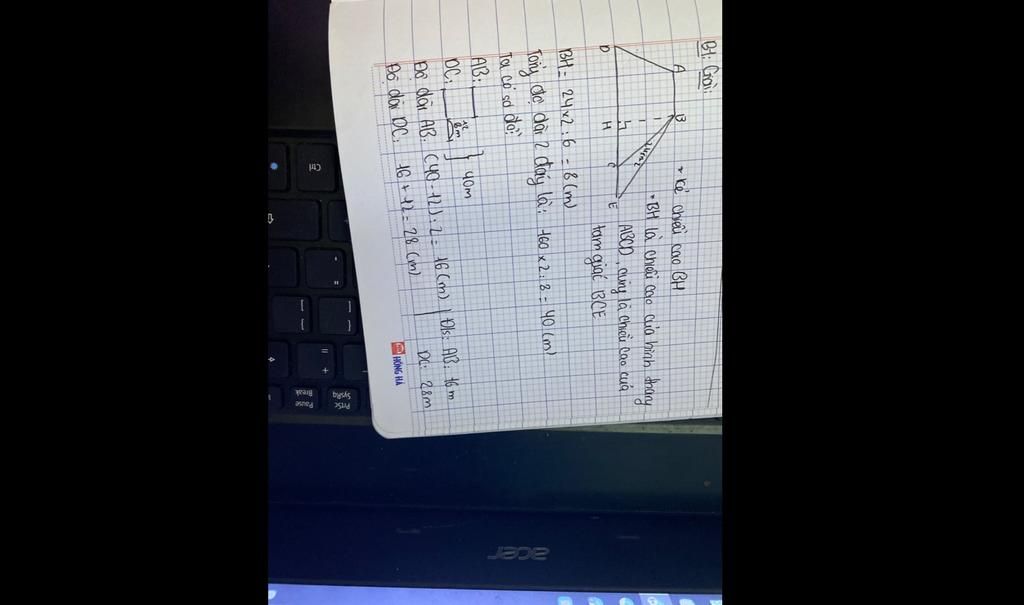 B1: Giải:
A
B
24m2
D
H
C
E
* Kẻ chiều cao BH
* BH là chiều cao của hình thang
ABCD, cũng là chiều cao của
tam giác BCE
BH = 24 x 2 : 6 = 8 (m)
Tổng độ dài 2 đáy là: 160 x 2 : 8 = 40 (m)
Ta có sơ đồ:
AB:
DC:
12m
40m
Độ dài AB: (40 - 12) : 2 = 16 (m)
Độ dài DC: 16 + 12 = 28 (m)
Đ/s: AB: 16m
DC: 28m
HỒNG HÀ
Ctrl
PrtSc
SysRq
Pause
Break
acer